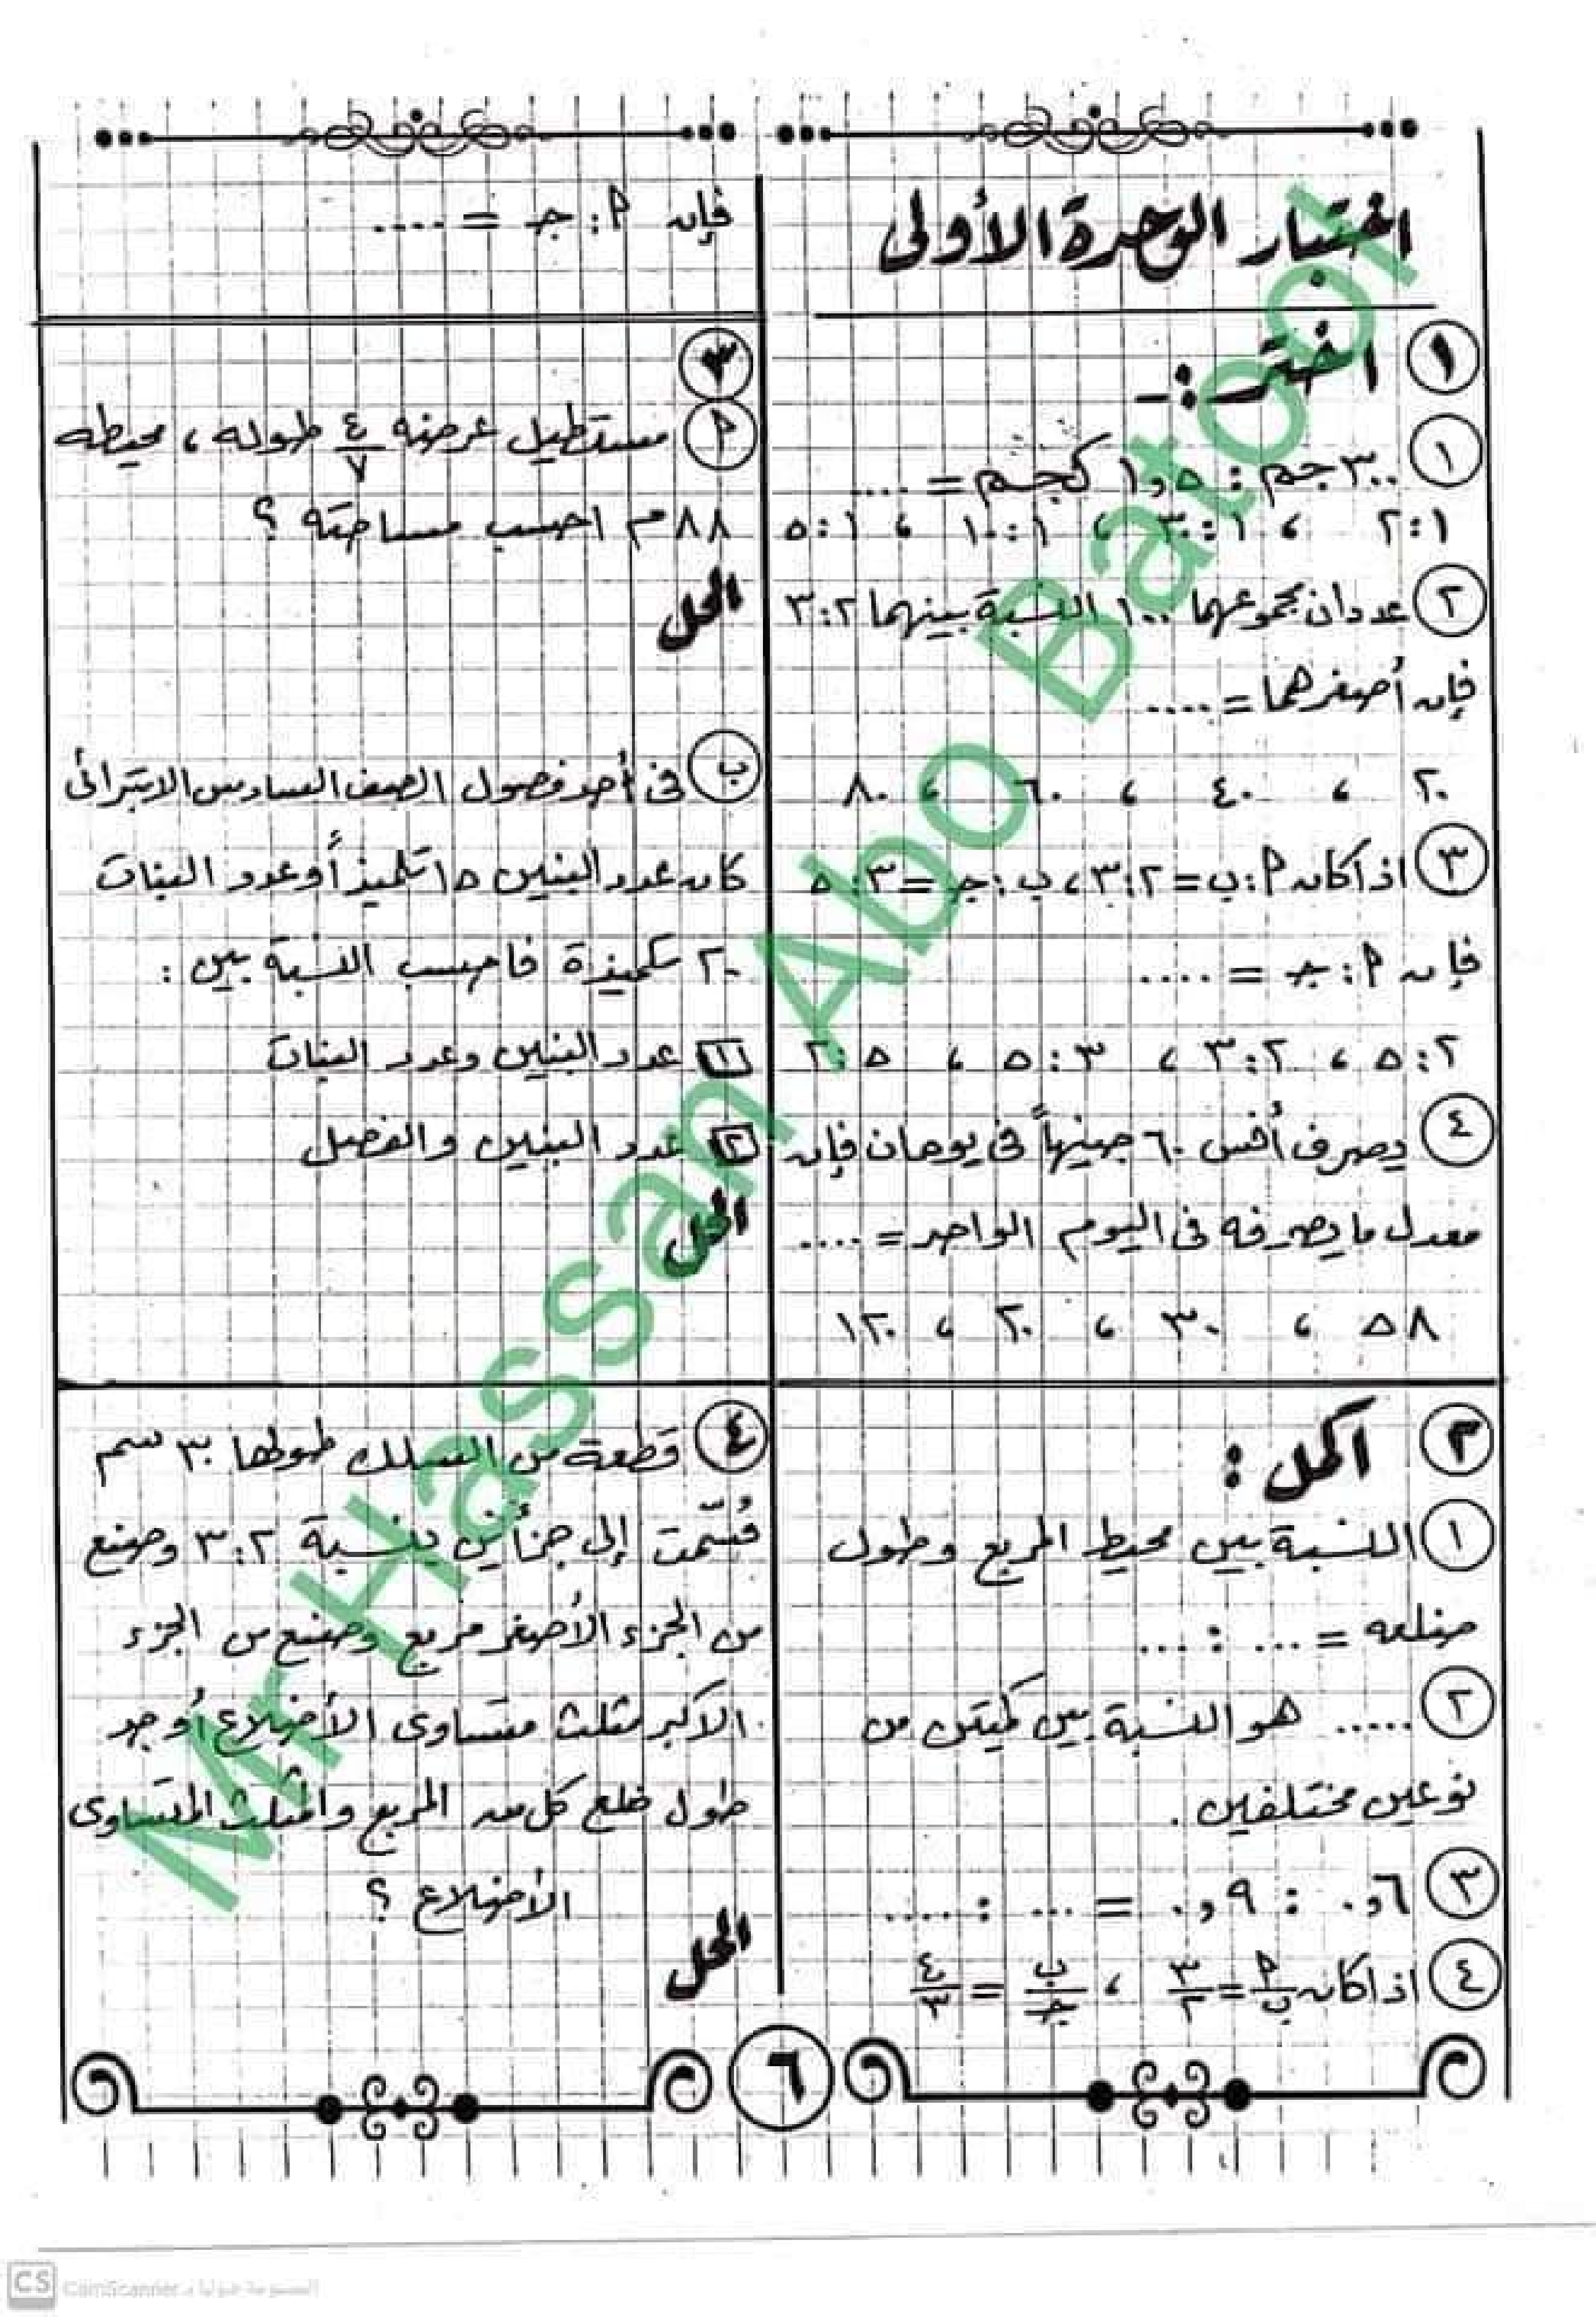 اختبار الوحدة الأولى
١ اختر :-
١ ٣٠٠ جم : ١,٥ كجم = ....
١:٢ ، ١:٣٠ ، ١:١٠ ، ١:٥
٢ عددان مجموعهما ١٠٠ النسبة بينهما ٣:٢
فإن أصغرهما = ....
٢٠ ، ٤٠ ، ٦٠ ، ٨٠
٣ اذا كان م : ب = ٣:٢ ، ب : جـ = ٥:٣
فإن م : جـ = ....
٥:٢ ، ٣:٢ ، ٥:٣ ، ٢:٥
٤ يصرف أنس ٦٠ جنيهاً فى يومان فإن
معدل ما يصرفه فى اليوم الواحد = ....
٥٨ ، ٣٠ ، ٢٠ ، ١٢٠
٢ اكمل :
١ النسبة بين محيط المربع وطول
ضلعه = ... : ...
٢ ..... هو النسبة بين كميتين من
نوعين مختلفين .
٣ ٠,٦ : ٠,٩ = ... : ....
٤ اذا كان م/ب = ٣/٢ ، ب/جـ = ٤/٣
فإن م : جـ = ....
٣
م مستطيل عرضه ٤/٧ طوله ، محيطه
٨٨ م احسب مساحته ؟
الحل
ب فى أحد فصول الصف السادس الابتدائى
كان عدد البنين ١٥ تلميذاً وعدد البنات
٢٠ تلميذة فاحسب النسبة بين :
١ عدد البنين وعدد البنات
٢ عدد البنين والفصل
الحل
٤ قطعة من السلك طولها ٣٠ سم
قُسّمت إلى جزأين بنسبة ٣:٢ وصنع
من الجزء الأصغر مربع وصنع من الجزء
الاكبر مثلث متساوى الأضلاع أوجد
طول ضلع كل من المربع والمثلث المتساوى
الأضلاع ؟
الحل
٦
Mr Hassan Abo Batool
CS CamScanner الممسوحة ضوئيا بـ